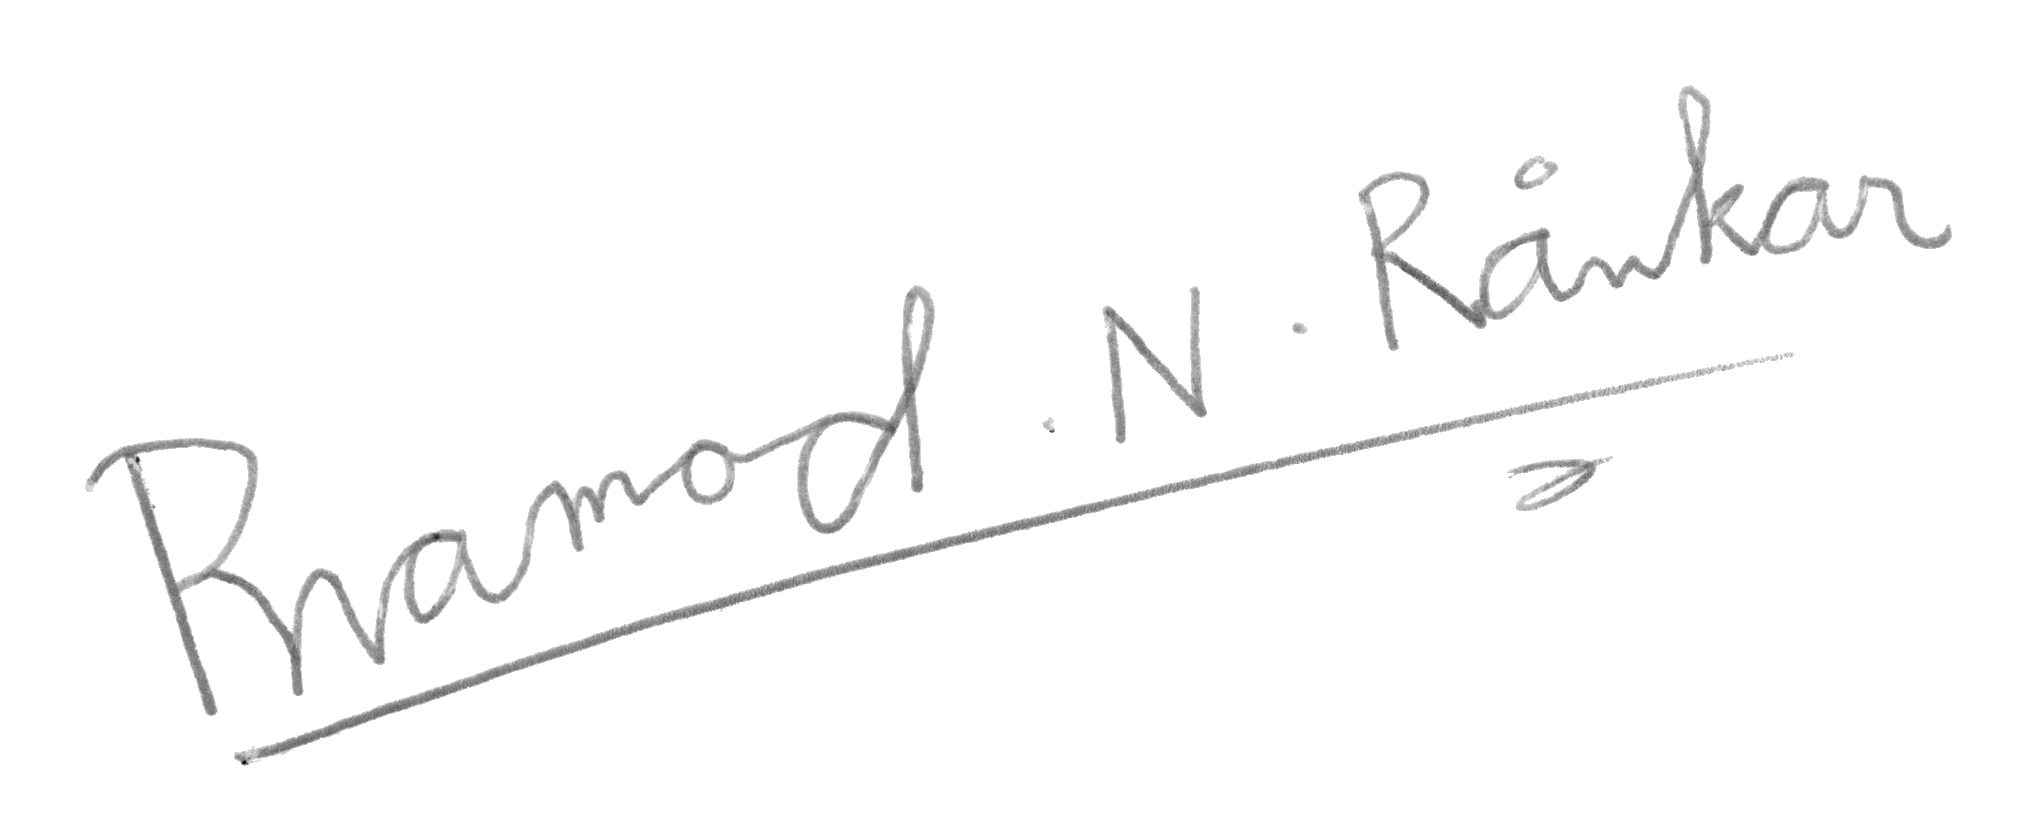 Pramod . N . Rånkar